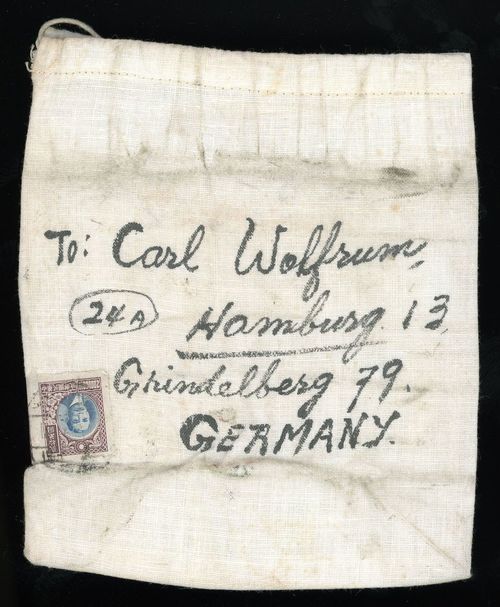 To: Carl Wolfrum,
24A Hamburg. 13
Grindelberg 79.
GERMANY.